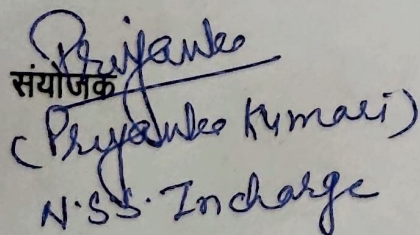 Priyanka
संयोजक
(Priyanka Kumari)
N.S.S. Incharge